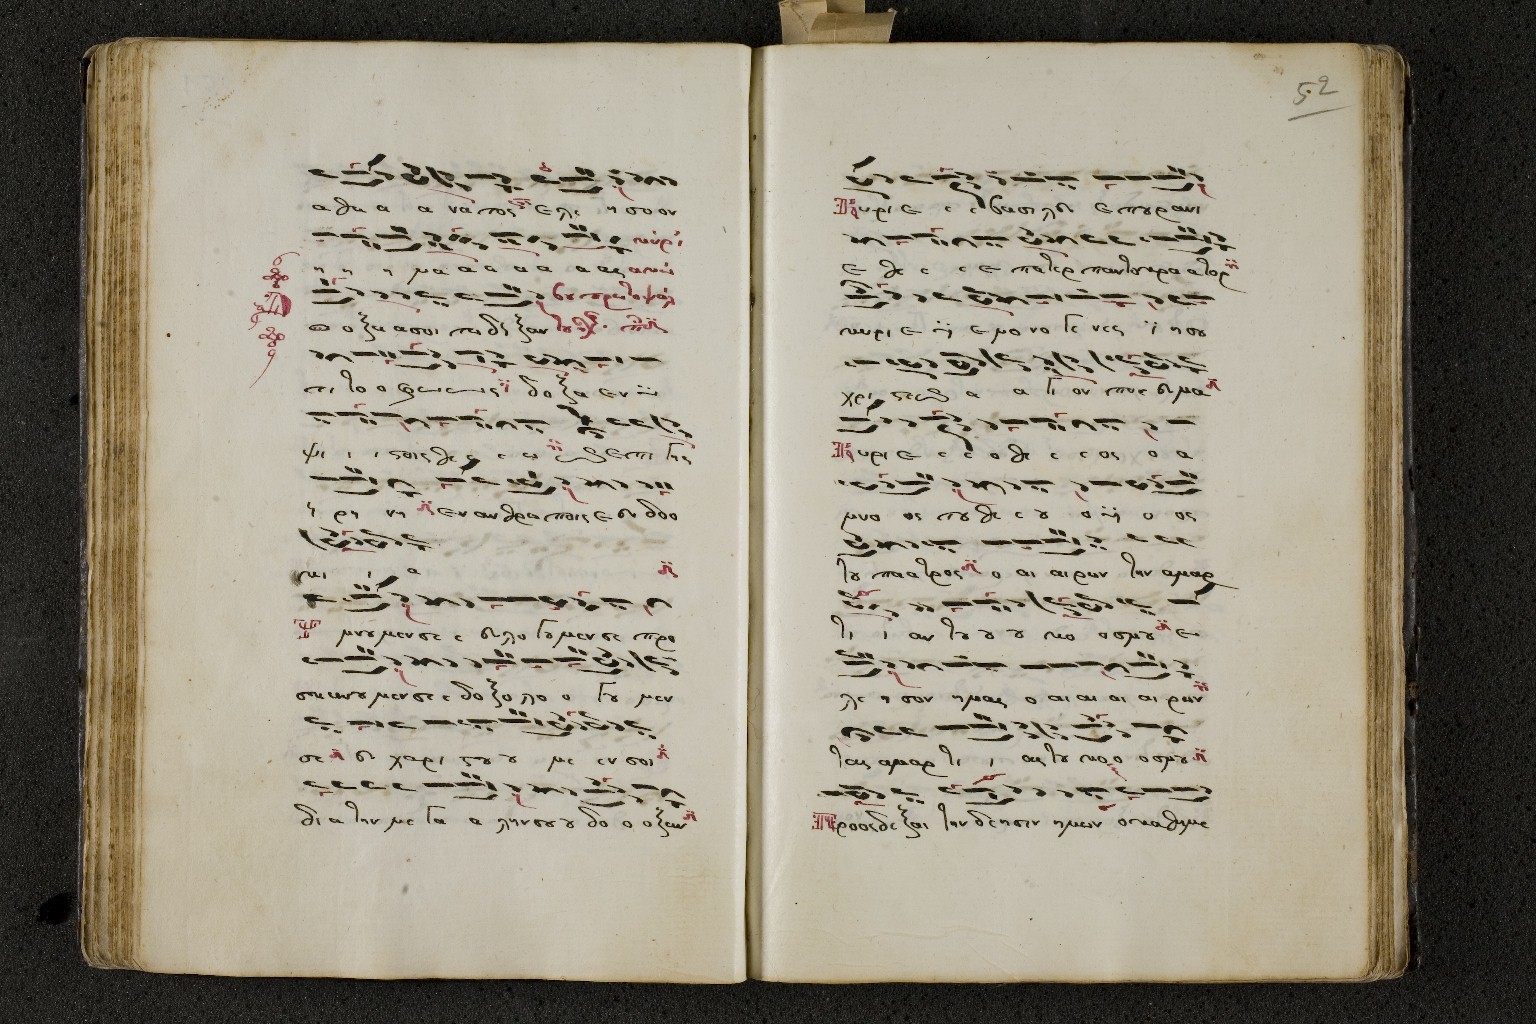 α θα α α να τος ε λε η σο ον
η η η μα α α α α α ας
δο ξα α σοι τω δει ξαν
τι το ο φως δο ξα εν υ
ψι ι ι στοις θε ε ε ω και ε πι γης
ει ρη νη εν αν θρω ποις ε ευ δο ο
κι ι α
Υ μνου μεν σε ε ευ λο γου μεν σε προ
σκυ νου μεν σε ε δο ξο λο ο γου μεν
σε ευ χα ρι στου ου με εν σοι
δι α την με γα α λην σου ου δο ο ο ξαν
52
Κυ ρι ε ε ε βα σι λευ ε που ρα νι
ε θε ε ε ε πα τερ παν το κρα α τορ
κυ ρι ε υι ε μο νο γε νες ι η σου
χρι στε και α α γι ον πνε ευ μα
Κυ ρι ε ε ε ο θε ε ε ος ο α
μνο ος του θε ε ου ο υι ο ος
του πα α τρος ο αι αι ρων την α μαρ
τι ι αν του ου ου κο ο σμου ε
λε η σον η μας ο αι αι αι αι ρων
τας α μαρ τι ι ας του κο ο ο σμου
Προ οσ δε ξαι την δε η σιν η μων ο κα θη με